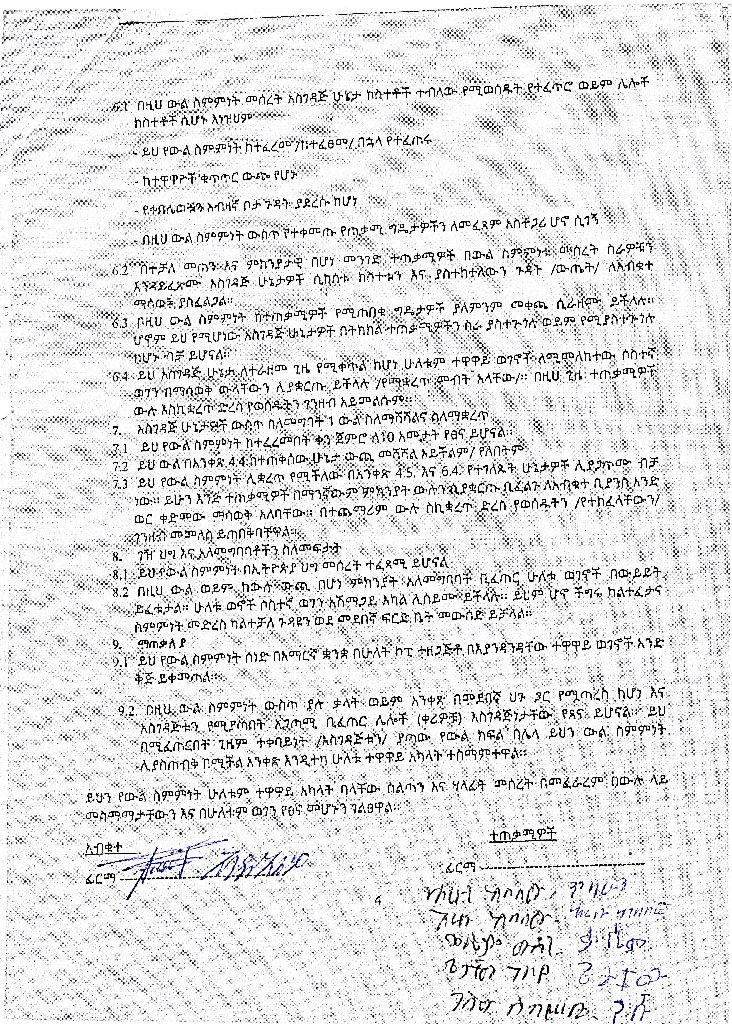 6.1 በዚህ ውል ስምምነት መሰረት አስገዳጅ ሁኔታ ክስተቶች ተብለው የሚወሰዱት የተፈጥሮ ወይም ሌሎች
ክስተቶች ሲሆኑ እነዚህም
- ይህ የውል ስምምነት ከተፈረመ /ከተፈፀመ/ በኋላ የተፈጠሩ
- ከተዋዋዮች ቁጥጥር ውጪ የሆነ
- አብዛኛ ቦታ ጉዳት ያደረሱ ከሆነ
- በዚህ ውል ስምምነት ውስጥ የተቀመጡ የጠቃሚ ግዴታዎችን ለመፈጸም አስቸጋሪ ሆኖ ሲገኝ
6.2 በተቻለ መጠን እና ምክንያታዊ በሆነ መንገድ ተጠቃሚዎች በውል ስምምነቱ መሰረት ስራዎቹን
እንዳይፈጽሙ አስገዳጅ ሁኔታዎች ሲከሰቱ ክስተቱን እና ያስከተለውን ጉዳት /ውጤት/ ለእብቁተ
ማሳወቅ ያስፈልጋል።
6.3 በዚህ ውል ስምምነት ከተጠቃሚዎች የሚጠበቁ ግዴታዎች ያለምንም መቀጮ ሊራዘሙ ይችላሉ።
ሆኖም ይህ የሚሆነው አስገዳጅ ሁኔታዎች በትክክል ተጠቃሚዎችን ስራ ያስተጓጎሉ ወይም የሚያስተጓጉሉ
ከሆኑ ብቻ ይሆናል።
6.4 ይህ አስገዳጅ ሁኔታ ለተራዘመ ጊዜ የሚቀጥል ከሆነ ሁለቱም ተዋዋይ ወገኖች ለሚመለከተው ሶስተኛ
ወገን በማሳወቅ ውላቸውን ሊያቋርጡ ይችላሉ /የማቋረጥ መብት አላቸው/። በዚህ ጊዜ ተጠቃሚዎች
ውሉ እስኪቋረጥ ድረስ የወሰዱትን ገንዘብ አይመልሱም።
7. አስገዳጅ ሁኔታዎች ውስጥ ስለመግባት ውል ስለማሻሻልና ስለማቋረጥ
7.1 ይህ የውል ስምምነት ከተፈረመበት ቀን ጀምሮ ለ10 አመታት የፀና ይሆናል።
7.2 ይህ ውል በአንቀጽ 4.4 ከተጠቀሰው ሁኔታ ውጪ መሻሻል አይችልም/ የለበትም
7.3 ይህ የውል ስምምነት ሊቋረጥ የሚችለው በአንቀጽ 4.5. እና 6.4. የተገለጹት ሁኔታዎች ሲያጋጥሙ ብቻ
ነው። ይሁን እንጅ ተጠቃሚዎች በማንኛውም ምክንያት ውሉን ሲያቋርጡ ቢፈልጉ ለእብቁተ ቢያንስ አንድ
ወር ቀድመው ማሳወቅ አለባቸው። በተጨማሪም ውሉ ስኪቋረጥ ድረስ የወሰዱትን /የተከፈላቸውን/
ገንዘብ መመለስ ይጠበቅባቸዋል።
8. ገዥ ህግ እና አለመግባባቶችን ስለመፍታት
8.1 ይህ የውል ስምምነት በኢትዮጵያ ህግ መሰረት ተፈጻሚ ይሆናል
8.2 በዚህ ውል ወይም ከውሉ ውጪ በሆነ ምክንያት አለመግባባት ቢፈጠር ሁለቱ ወገኖች በውይይት
ይፈቱታል። ሁለቱ ወኖች ሶስተኛ ወገን አሸማጋይ አካል ሊሰይሙ ይችላሉ። ይህም ሆኖ ችግሩ ካልተፈታና
ስምምነት መድረስ ካልተቻለ ጉዳዩን ወደ መደበኛ ፍርድ ቤት መውሰድ ይቻላል።
9. ማጠቃለያ
9.1 ይህ የውል ስምምነት ሰነድ በአማርኛ ቋንቋ በሁለት ኮፒ ተዘጋጅቶ በእያንዳንዳቸው ተዋዋይ ወገኖች አንድ
ቅጅ ይቀመጣል።
9.2 በዚህ ውል ስምምነት ውስጥ ያሉ ቃላት ወይም አንቀጽ በመደበኛ ህጉ ጋር የሚጣረስ ከሆነ እና
አስገዳጅቱን የሚያሳጠበት አጋጣሚ ቢፈጠር ሌሎች (ቀሪዎቹ) አስገዳጅነታቸው የጸና ይሆናል። ይህ
በሚፈጠርበት ጊዜም ተቀባይነት /አስገዳጅቱን/ ያጣው የውል ክፍል በሌላ ይህን ውል ስምምነት
ሊያስጠብቅ በሚችል አንቀጽ እንዲተካ ሁለቱ ተዋዋይ አካላት ተስማምተዋል።
ይህን የውል ስምምነት ሁለቱም ተዋዋይ አካላት ባላቸው ስልጣን እና ሃላፊት መሰረት በመፈራረም በውሉ ላይ
መስማማታቸውን እና በሁለቱም ወገን የፀና መሆኑን ገልፀዋል።
እብቁተ
ተጠቃሚዎች
ፊርማ
ፊርማ